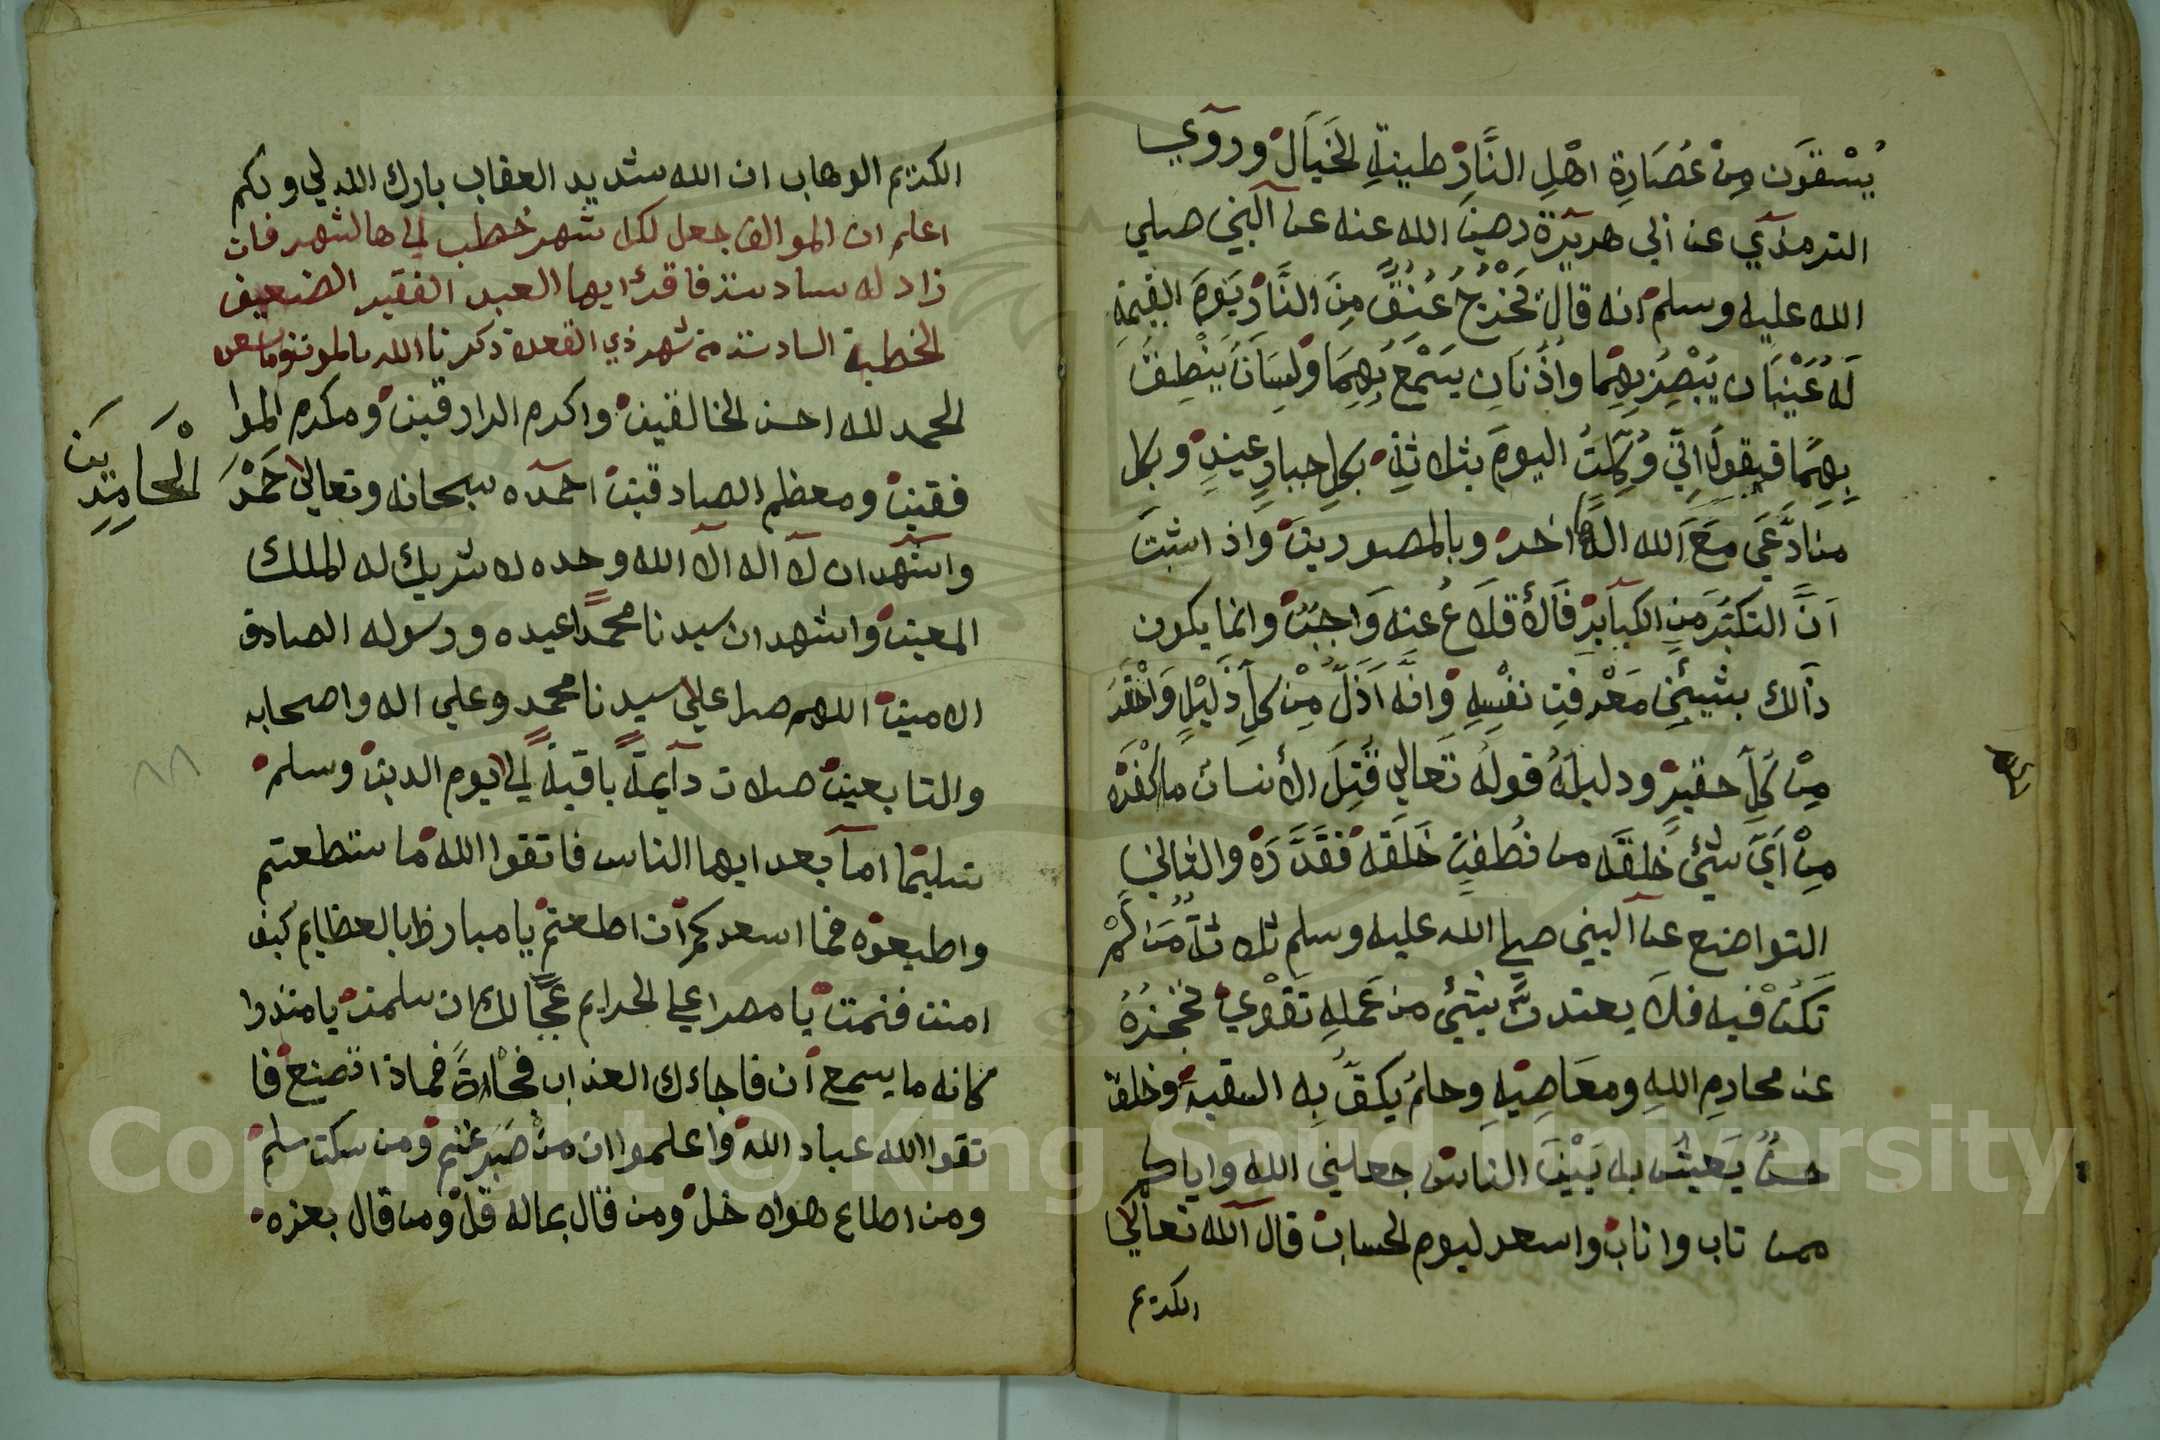 يُسْقَوَن مِنْ عُصَارِةِ اهْلِ النَّارِ طينةِ الخَبَالْ وروَي
الترمذَي عن ابي هريرة رضي الله عنه عن النبي صلي
الله عليه وسلم انه قال تَخْرُجُ عُنُقٌ مِنَ النَّارْ يَوَمَ القيمَةِ
لَهُ عَيْنَان يُبْصِرُ بِهِمَا واُذُنَانِ يسَمْعُ بِهِمَا وَلِسَانُ يَنْطِقُ
بِهِمَا فيقولُ اِنِّي وُكِّلتُ اليومَ بثلاثةِ بكلِ جبارٍ عنيدٍ وبكل
من ادَّعَي مَعَ الله الهًا اخر وبالمصورين واذ اثبتَ
اَنَّ التكبّرَ مَنِ الكبَايرِ فَالأقلَاعُ عنِه وَاجبٌ وانما يكون
ذَالك بشيئِن مَعْرفتِ نفْسِهِ وَانَّه اَذَلُّ مِنْ كلِ ذَلَيْلٍ وَاحْقَرَ
مِنْ كُلِ حقيرٍ ودليلهُ قولهُ تَعَالي قُتِلَ الأنسانُ ما اكْفَرَهُ
مِنْ اَيَّ شئٍ خَلَقَه من نُطفةٍ خَلَقَه فَقَدَّرَهْ والثاني
التواضع عن النبي صلي الله عليه وسلم ثلاثةُ مَن لَمْ
تَكُنْ فيه فلاَ يعتدنَّ بشئٍ من عَمله تَقْوي تحْجُزُهُ
عن محارمِ اللهِ ومعَاصِيْهِ وحلمُ يكفَّ بِه السفيه وخلقٌ
حسنٌ يَعيشُ به بَيْنَ الناس جعلني الله واياكم
ممن تاب واناب واسعد ليوم الحساب قال الله تعالي
الكريم
الكريم الوهاب ان الله شديد العقاب بارك الله لي ولكم
اعلم ان الموالف جعل لكل شهر خُطب الي هالشهر فان
زاد له سادستة فاقرأ ايها العبد الفقير الضعيف
الخطبة السادستة من شهر ذي القعدة ذكرنا الله بالموت
الحمد لله احسن الخالقين واكرم الرازقين ومكرم الموا
فقين ومعظم الصادقين احمده سبحانه وتعالي حَمْدَ
الْحَامِدِيَن
واشهد ان لا اله الا الله وحده لا شريك له الملك
المعين واشهد ان سيدنا محمداً عبده ورسوله الصادق
الامين اللهم صل علي سيدنا محمدٍ وعلي اله واصحابه
والتابعين صلات دايمةً باقيةً الي يوم الدين وسلم
تسليما اما بعد ايها الناس فاتقوا الله ما ستطعتم
واطيعوه فما اسعدكم ان اطعتم يا مبارظ بالعظايم كيف
امنت فنمت يا مصرا علي الحرام عجباً لك ان سلمت يا منذرا
كانه ما يسمع ان فاجاءك العذاب فجْاءةً فماذا تصنع فا
تقوا الله عباد الله واعلموا ان منْ صَبَر غنم ومن سكت سلم
ومن اطاع هواه ضل ومن قال بماله قلْ ومن قال بعزه